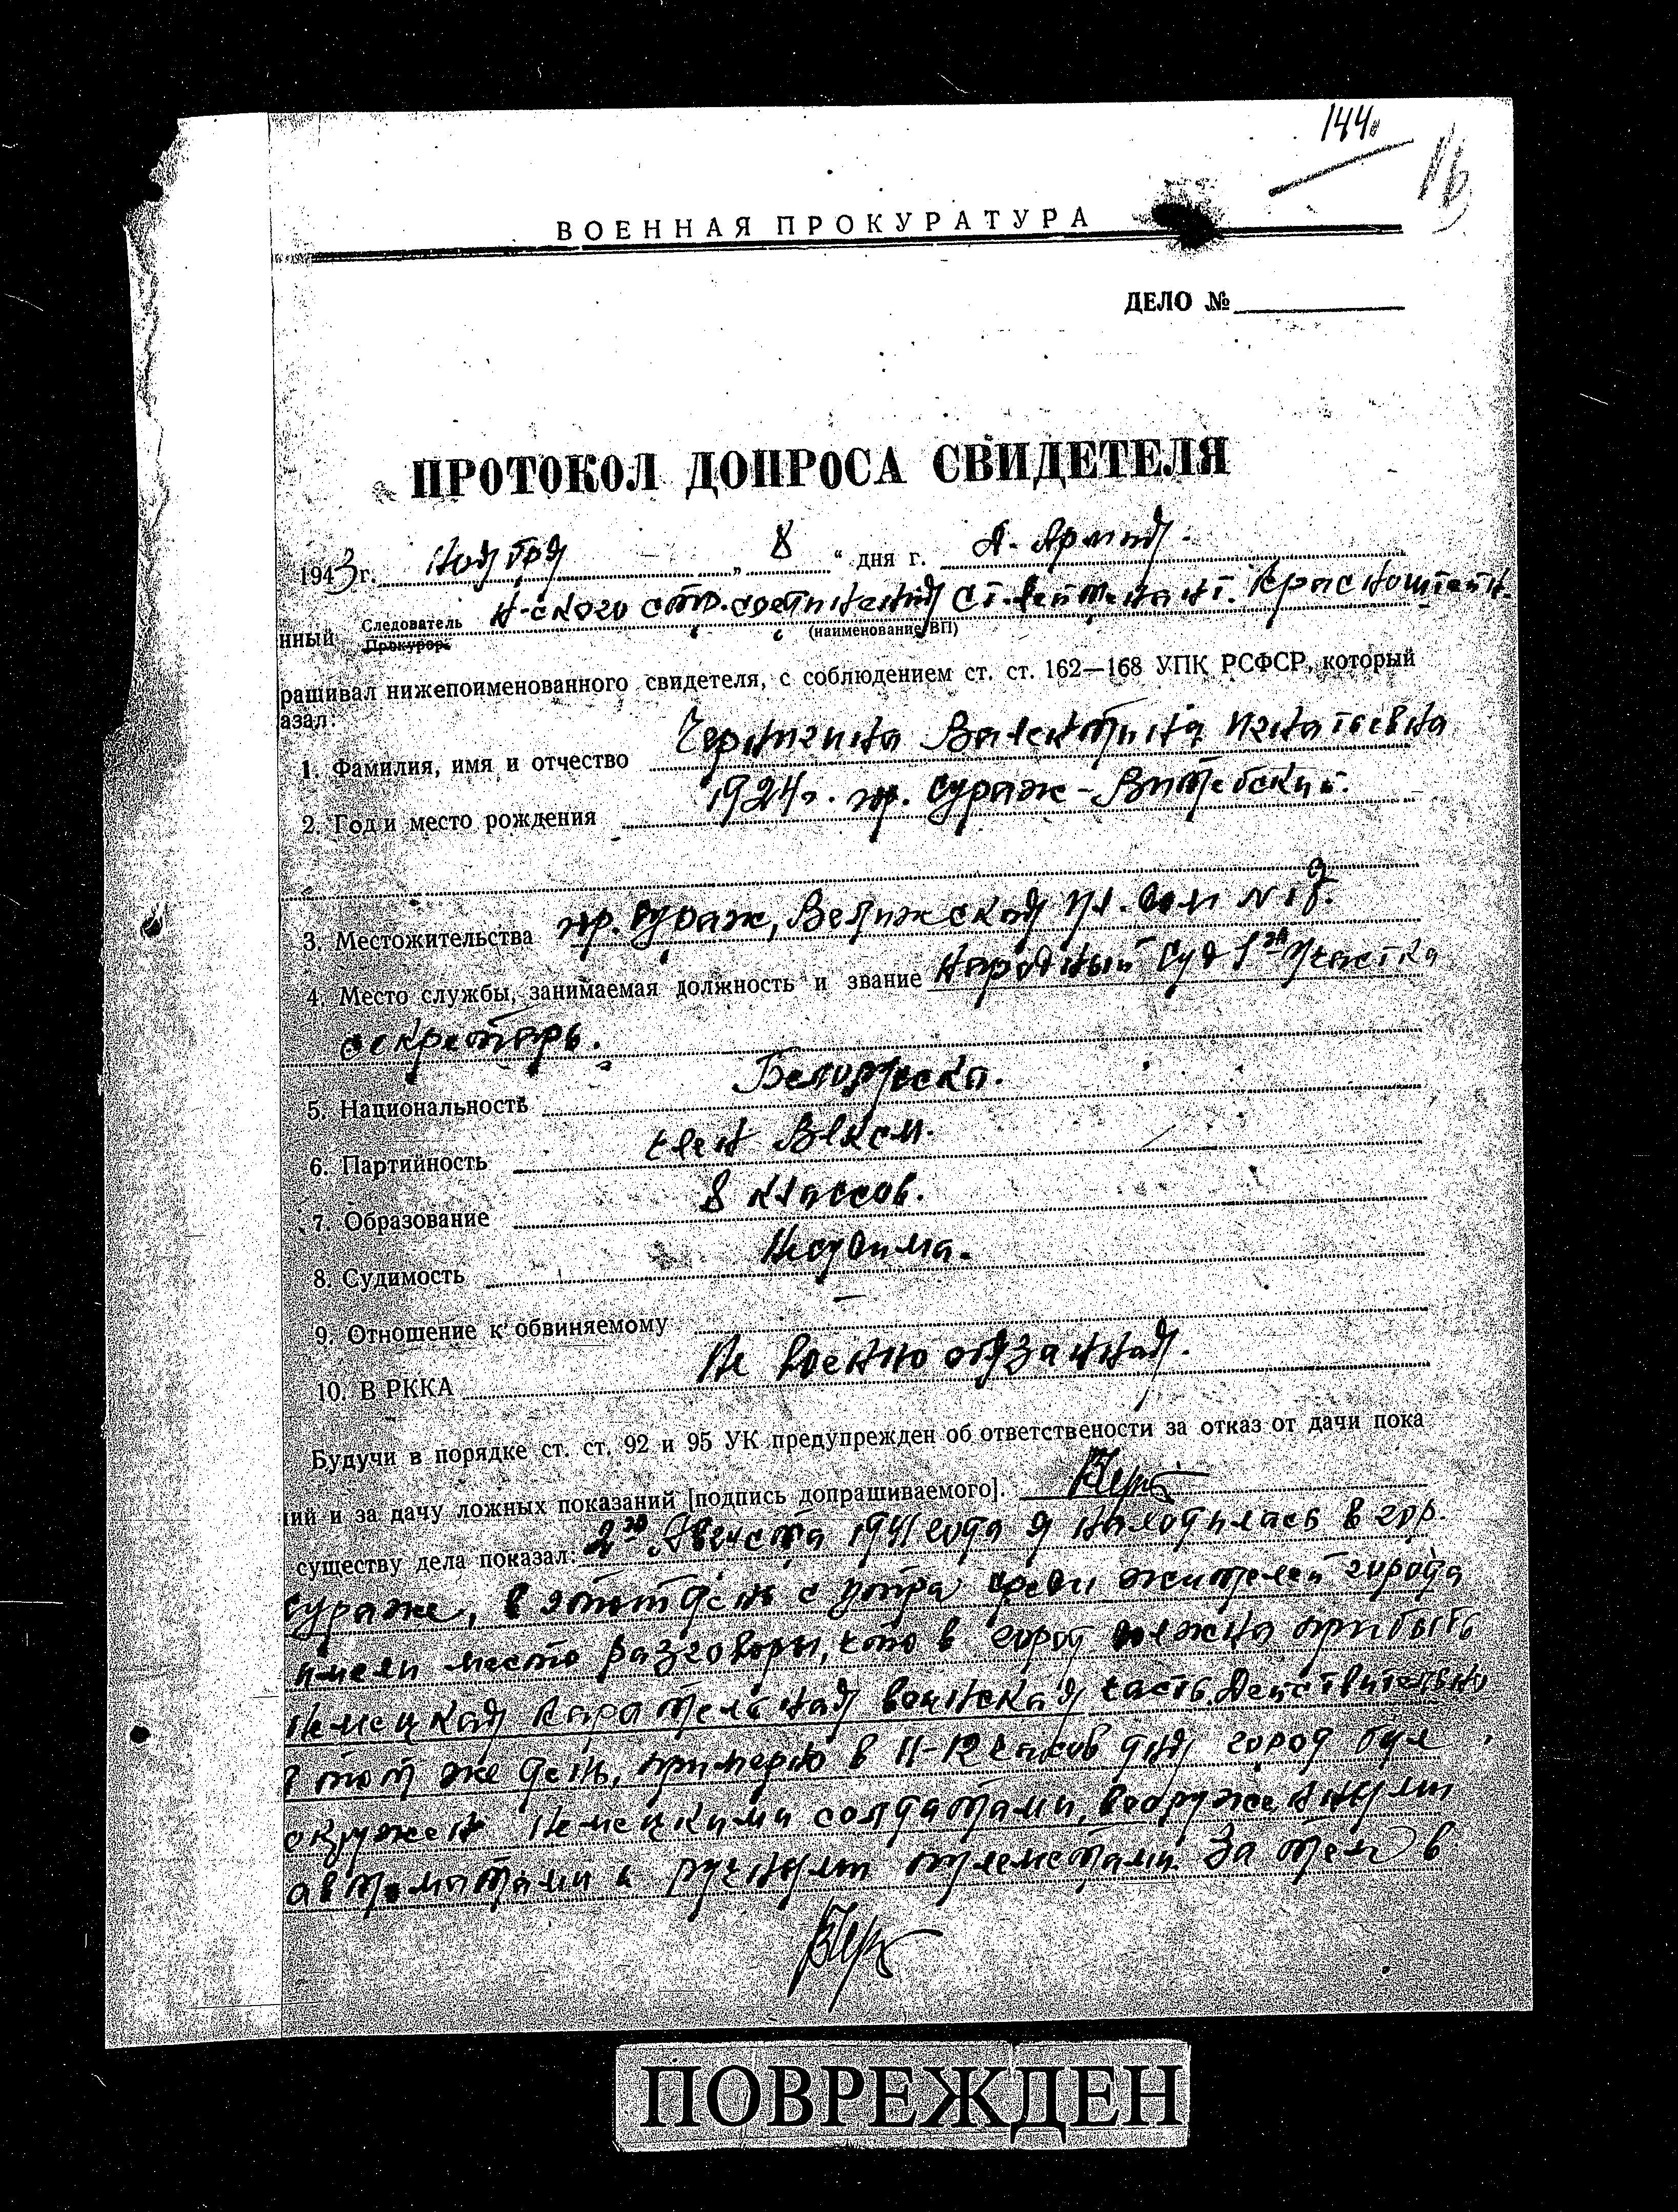 144
16
ВОЕННАЯ ПРОКУРАТУРА
ДЕЛО №
ПРОТОКОЛ ДОПРОСА СВИДЕТЕЛЯ
1943 г. Ноября „ 8 “ дня г. Д. Армия.
нный Следователь Н-ского стр. соединения Ст. лейтенант. Краснощтейн.
Прокурор (наименование ВП)
рашивал нижепоименованного свидетеля, с соблюдением ст. ст. 162—168 УПК РСФСР, который
азал:
1. Фамилия, имя и отчество Валентина Игнатьевна
2. Год и место рождения 1924 г. гор. Сураж-Витебский.
3. Местожительства гор. Сураж, Велижская ул. дом №
4. Место службы, занимаемая должность и звание Народный Суд 1го Участка
секретарь.
5. Национальность Белорусска.
6. Партийность член ВЛКСМ.
7. Образование 8 классов.
8. Судимость Несудима.
9. Отношение к обвиняемому —
10. В РККА Не военнообязанная.
Будучи в порядке ст. ст. 92 и 95 УК предупрежден об ответствености за отказ от дачи пока
ий и за дачу ложных показаний [подпись допрашиваемого].
существу дела показал: 2го Августа 1941 года я находилась в гор.
Сураже, в этот день с утра среди жителей города
имели место разговоры, что в город должна прибыть
немецкая карательная воинская часть. Действительно
в тот же день, примерно в 11-12 часов дня город был
окружен немецкими солдатами, вооруженными
автоматами и ручными пулеметами. За тем в
ПОВРЕЖДЕН